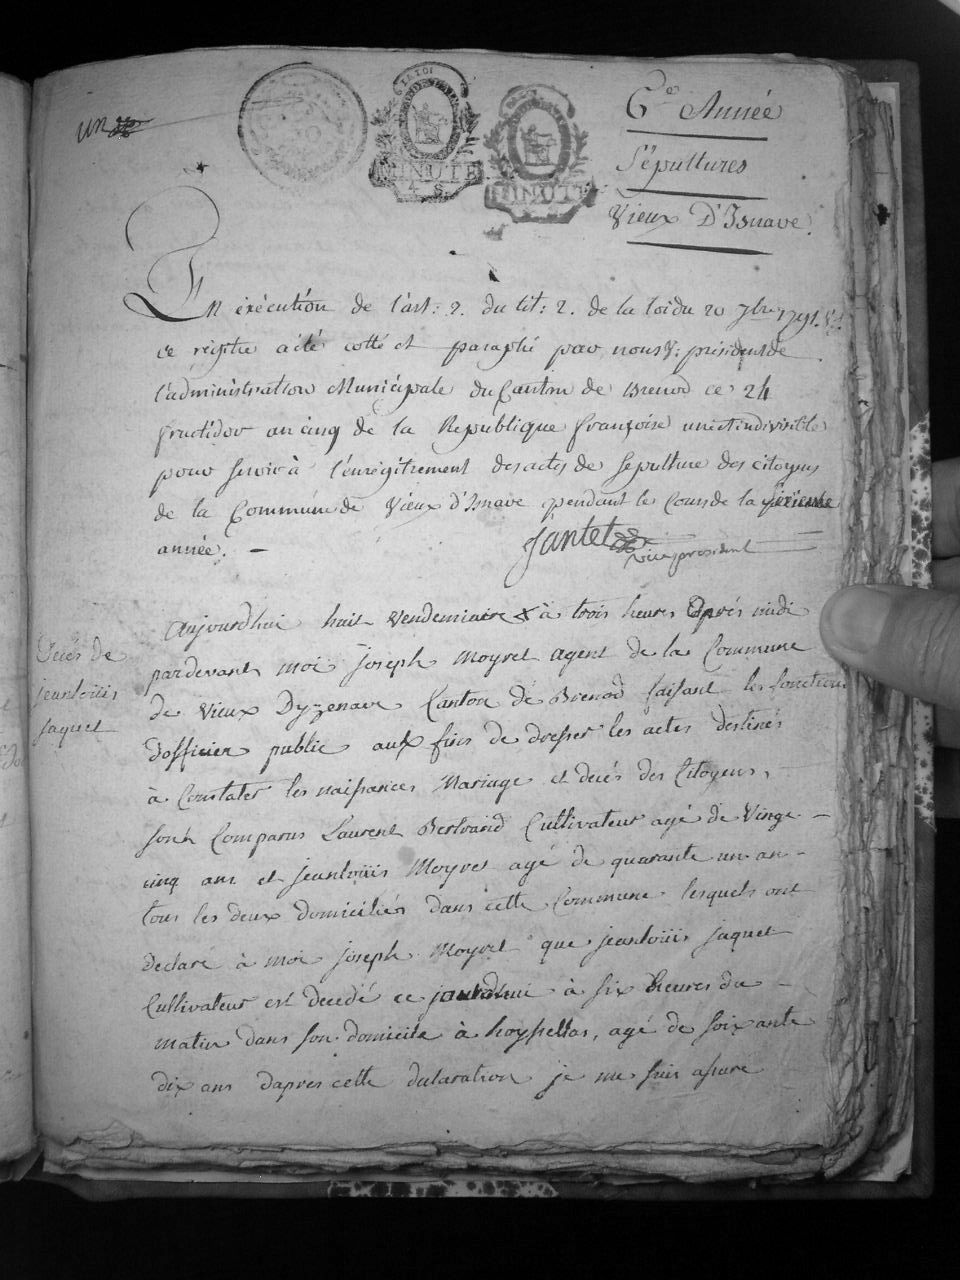 un
MINUTE
4 S.
MINUTE
6e Année
Sépultures
Vieux D'Isnave.
En exécution de l'art: 2. du tit: 2. de la loi du 20 7bre 1791.
ce régitre a été cotté et paraphé par nous V: président de
l'administration Municipale du Canton de Brenod ce 24
fructidor an cinq de la Republique françoise une et indivisible
pour servir à l'enrégitrement des actes de sepulture des citoyens
de la Commune de Vieux d'Isnave pendant le cours de la sixieme
année. —
Jantet
vice president
Deces de
jean louiis
jaquet
Aujourdhui huit Vendemiaire à trois heures Après midi
pardevant moi joseph Moyret agent de la Commune
de Vieux Dyzenave Canton de Brenod faisant les fonctions
dofficier public aux fins de dresser les actes destinés
à Constater les naissances Mariage et decés des Citoyens,
sont Comparus Laurent Bertrand Cultivateur agé de Vingt
cinq ans et jeanlouiis Moyret agé de quarante un an
tous les deux domiciliés dans cette Commune lesquels ont
declaré à moi joseph Moyret que jeanlouiis jaquet
Cultivateur est decedé ce jourdhui à six heures du
matin dans son domicile à , agé de soixante
dix ans dapres cette declaration je me suis assuré